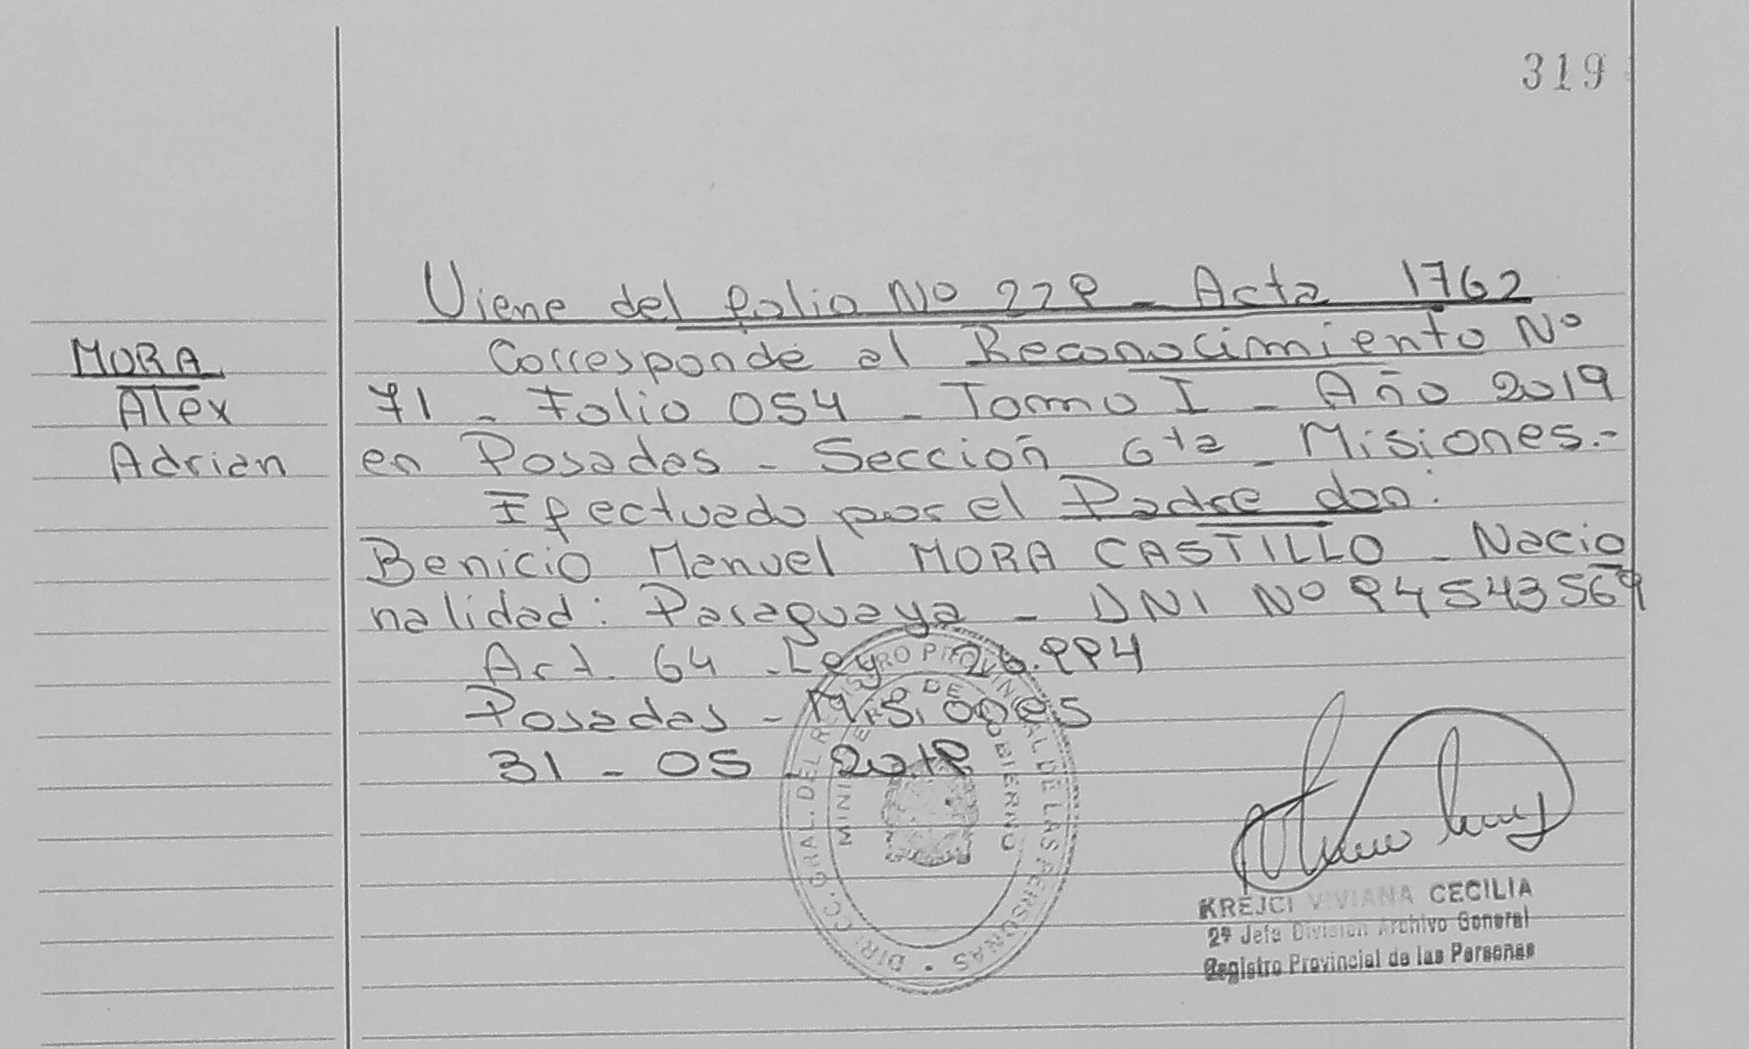 319
Viene del folio Nº 229 - Acta 1762
MORA
Alex
Adrian
Corresponde al Reconocimiento Nº
71 - Folio 054 - Tomo I - Año 2019
en Posadas - Sección 6ta - Misiones.-
Efectuado por el Padre don:
Benicio Manuel MORA CASTILLO - Nacio
nalidad: Paraguaya - DNI Nº 94543569
Art. 64 - Ley 26.994
Posadas - Misiones
31 - 05 - 2019
DIRECC. GRAL. DEL REGISTRO PROVINCIAL DE LAS PERSONAS
MINISTERIO DE GOBIERNO
KREJCI VIVIANA CECILIA
2ª Jefa División Archivo General
Registro Provincial de las Personas